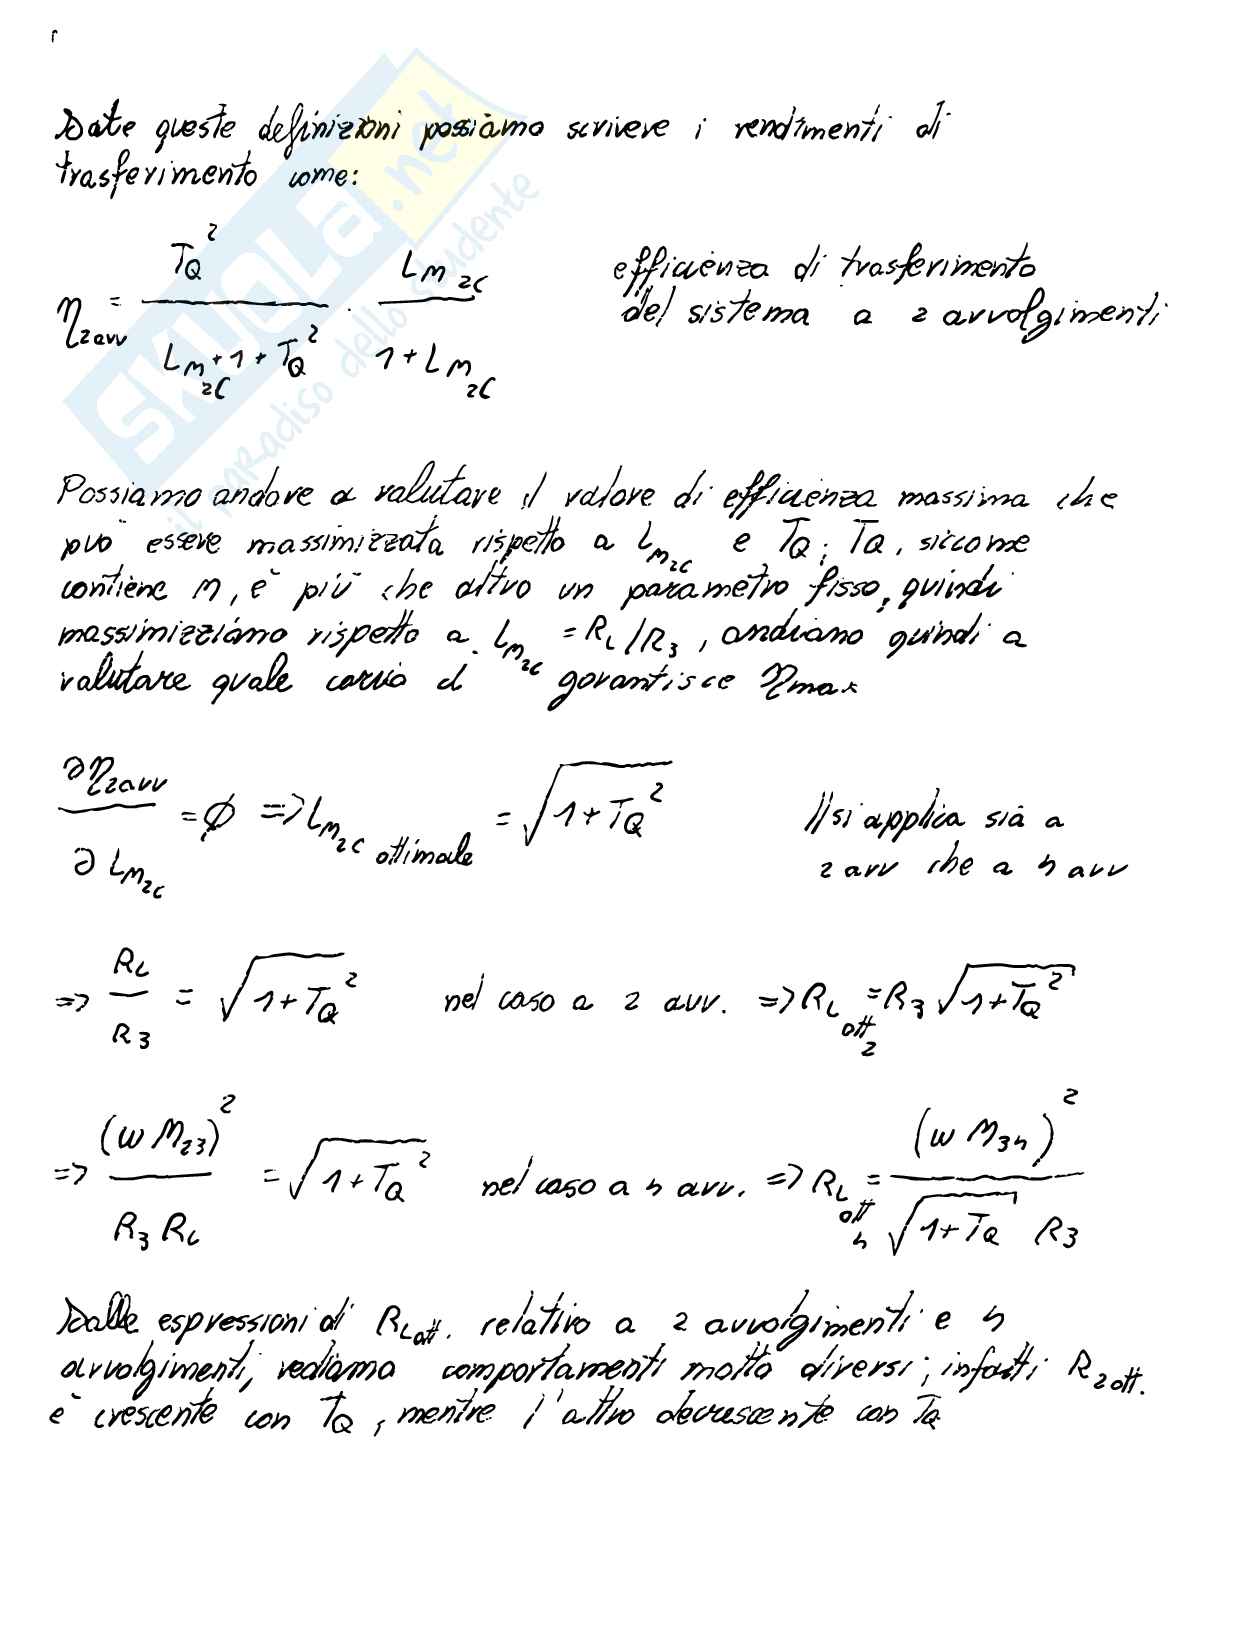 Date queste definizioni possiamo scrivere i rendimenti di
trasferimento come:
η_2avv = T_Q² / (L_M2C + 1 + T_Q²) · L_M2C / (1 + L_M2C) efficienza di trasferimento
del sistema a 2 avvolgimenti
Possiamo andare a valutare il valore di efficienza massima che
può essere massimizzata rispetto a L_M2C e T_Q; T_Q, siccome
contiene M, è più che altro un parametro fisso, quindi
massimizziamo rispetto a L_M2C = R_L/R_3, andiamo quindi a
valutare quale carico ci garantisce η_max
∂η_2avv / ∂L_M2C = ∅ => L_M2C ottimale = √(1+T_Q²) // si applica sia a
2 avv che a 4 avv
=> R_L / R_3 = √(1+T_Q²) nel caso a 2 avv. => R_L ott 2 = R_3 √(1+T_Q²)
=> (ω M_23)² / (R_3 R_L) = √(1+T_Q²) nel caso a 4 avv. => R_L ott 4 = (ω M_34)² / (√(1+T_Q) R_3)
Dalle espressioni di R_L ott. relativo a 2 avvolgimenti e 4
avvolgimenti, vediamo comportamenti molto diversi; infatti R_2 ott.
è crescente con T_Q, mentre l'altro decrescente con T_Q
SKUOLA.net
il paradiso dello studente